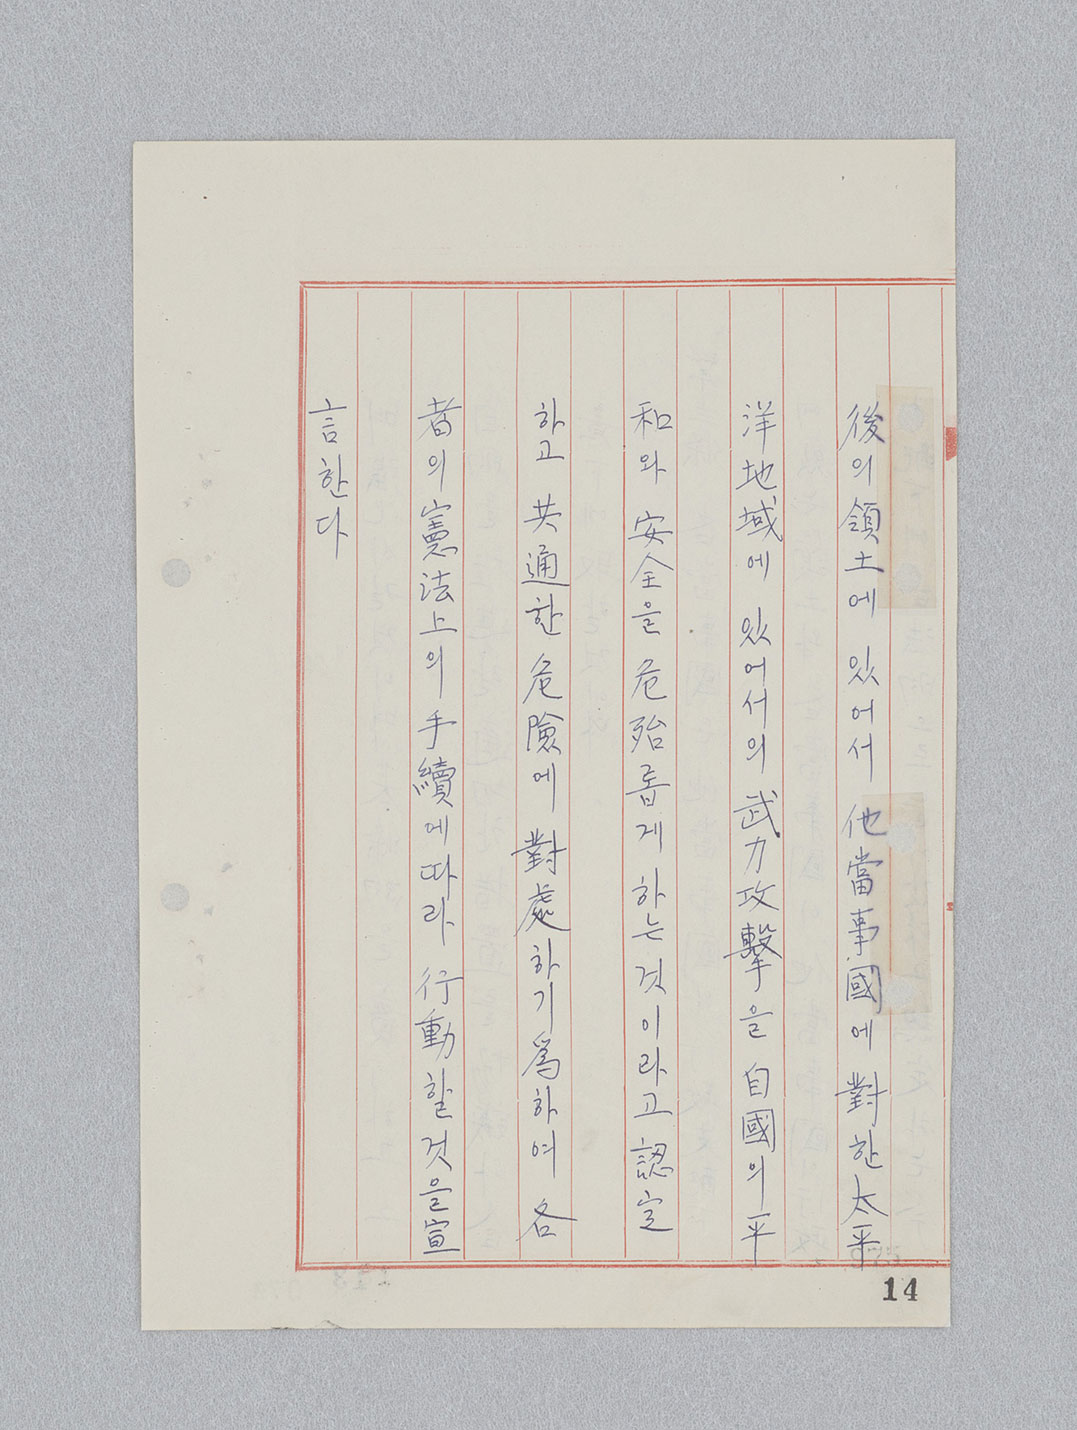 後의領土에 있어서 他當事國에 對한太平
洋地域에 있어서의 武力攻擊을 自國의平
和와 安全을 危殆롭게 하는것이라고 認定
하고 共通한 危險에 對處하기爲하여 各
者의 憲法上의 手續에따라 行動할것을宣
言한다
14